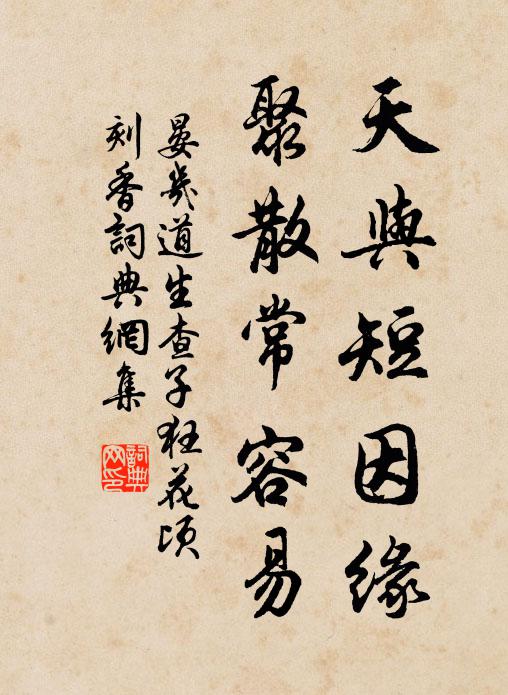 天與短因緣
聚散常容易
晏幾道生查子狂花頃
刻香詞典網集
詞典网印